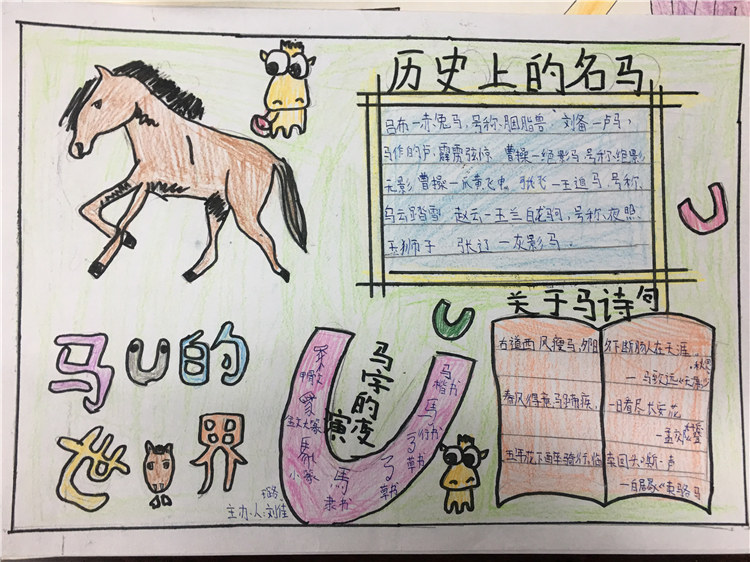 历史上的名马
吕布一赤兔马,号称,胭脂兽.刘备一卢马,
马作的卢.霹雳弦惊.曹操一绝影马,号称.绝影
无影曹操一爪黄飞电.张飞一王追马.号称.
乌云踏雪.赵云一玉兰白龙驹,号称.夜照.
玉狮子 张辽一灰影马.
关于马诗句
古道西风瘦马,夕阳 夕下断肠人在天涯
一马致远《天净沙
.秋思
春风得意马蹄疾, 一日看尽长安花
一孟郊《登科
五年花下
骑行,临 回头 嘶一声
一白居易《卖骆马
马的
世界
马字的变
演
甲骨文
金文大篆
小篆
馬
隶书
草书
草书
行书
馬
楷书
马
璐
主办人:刘佳